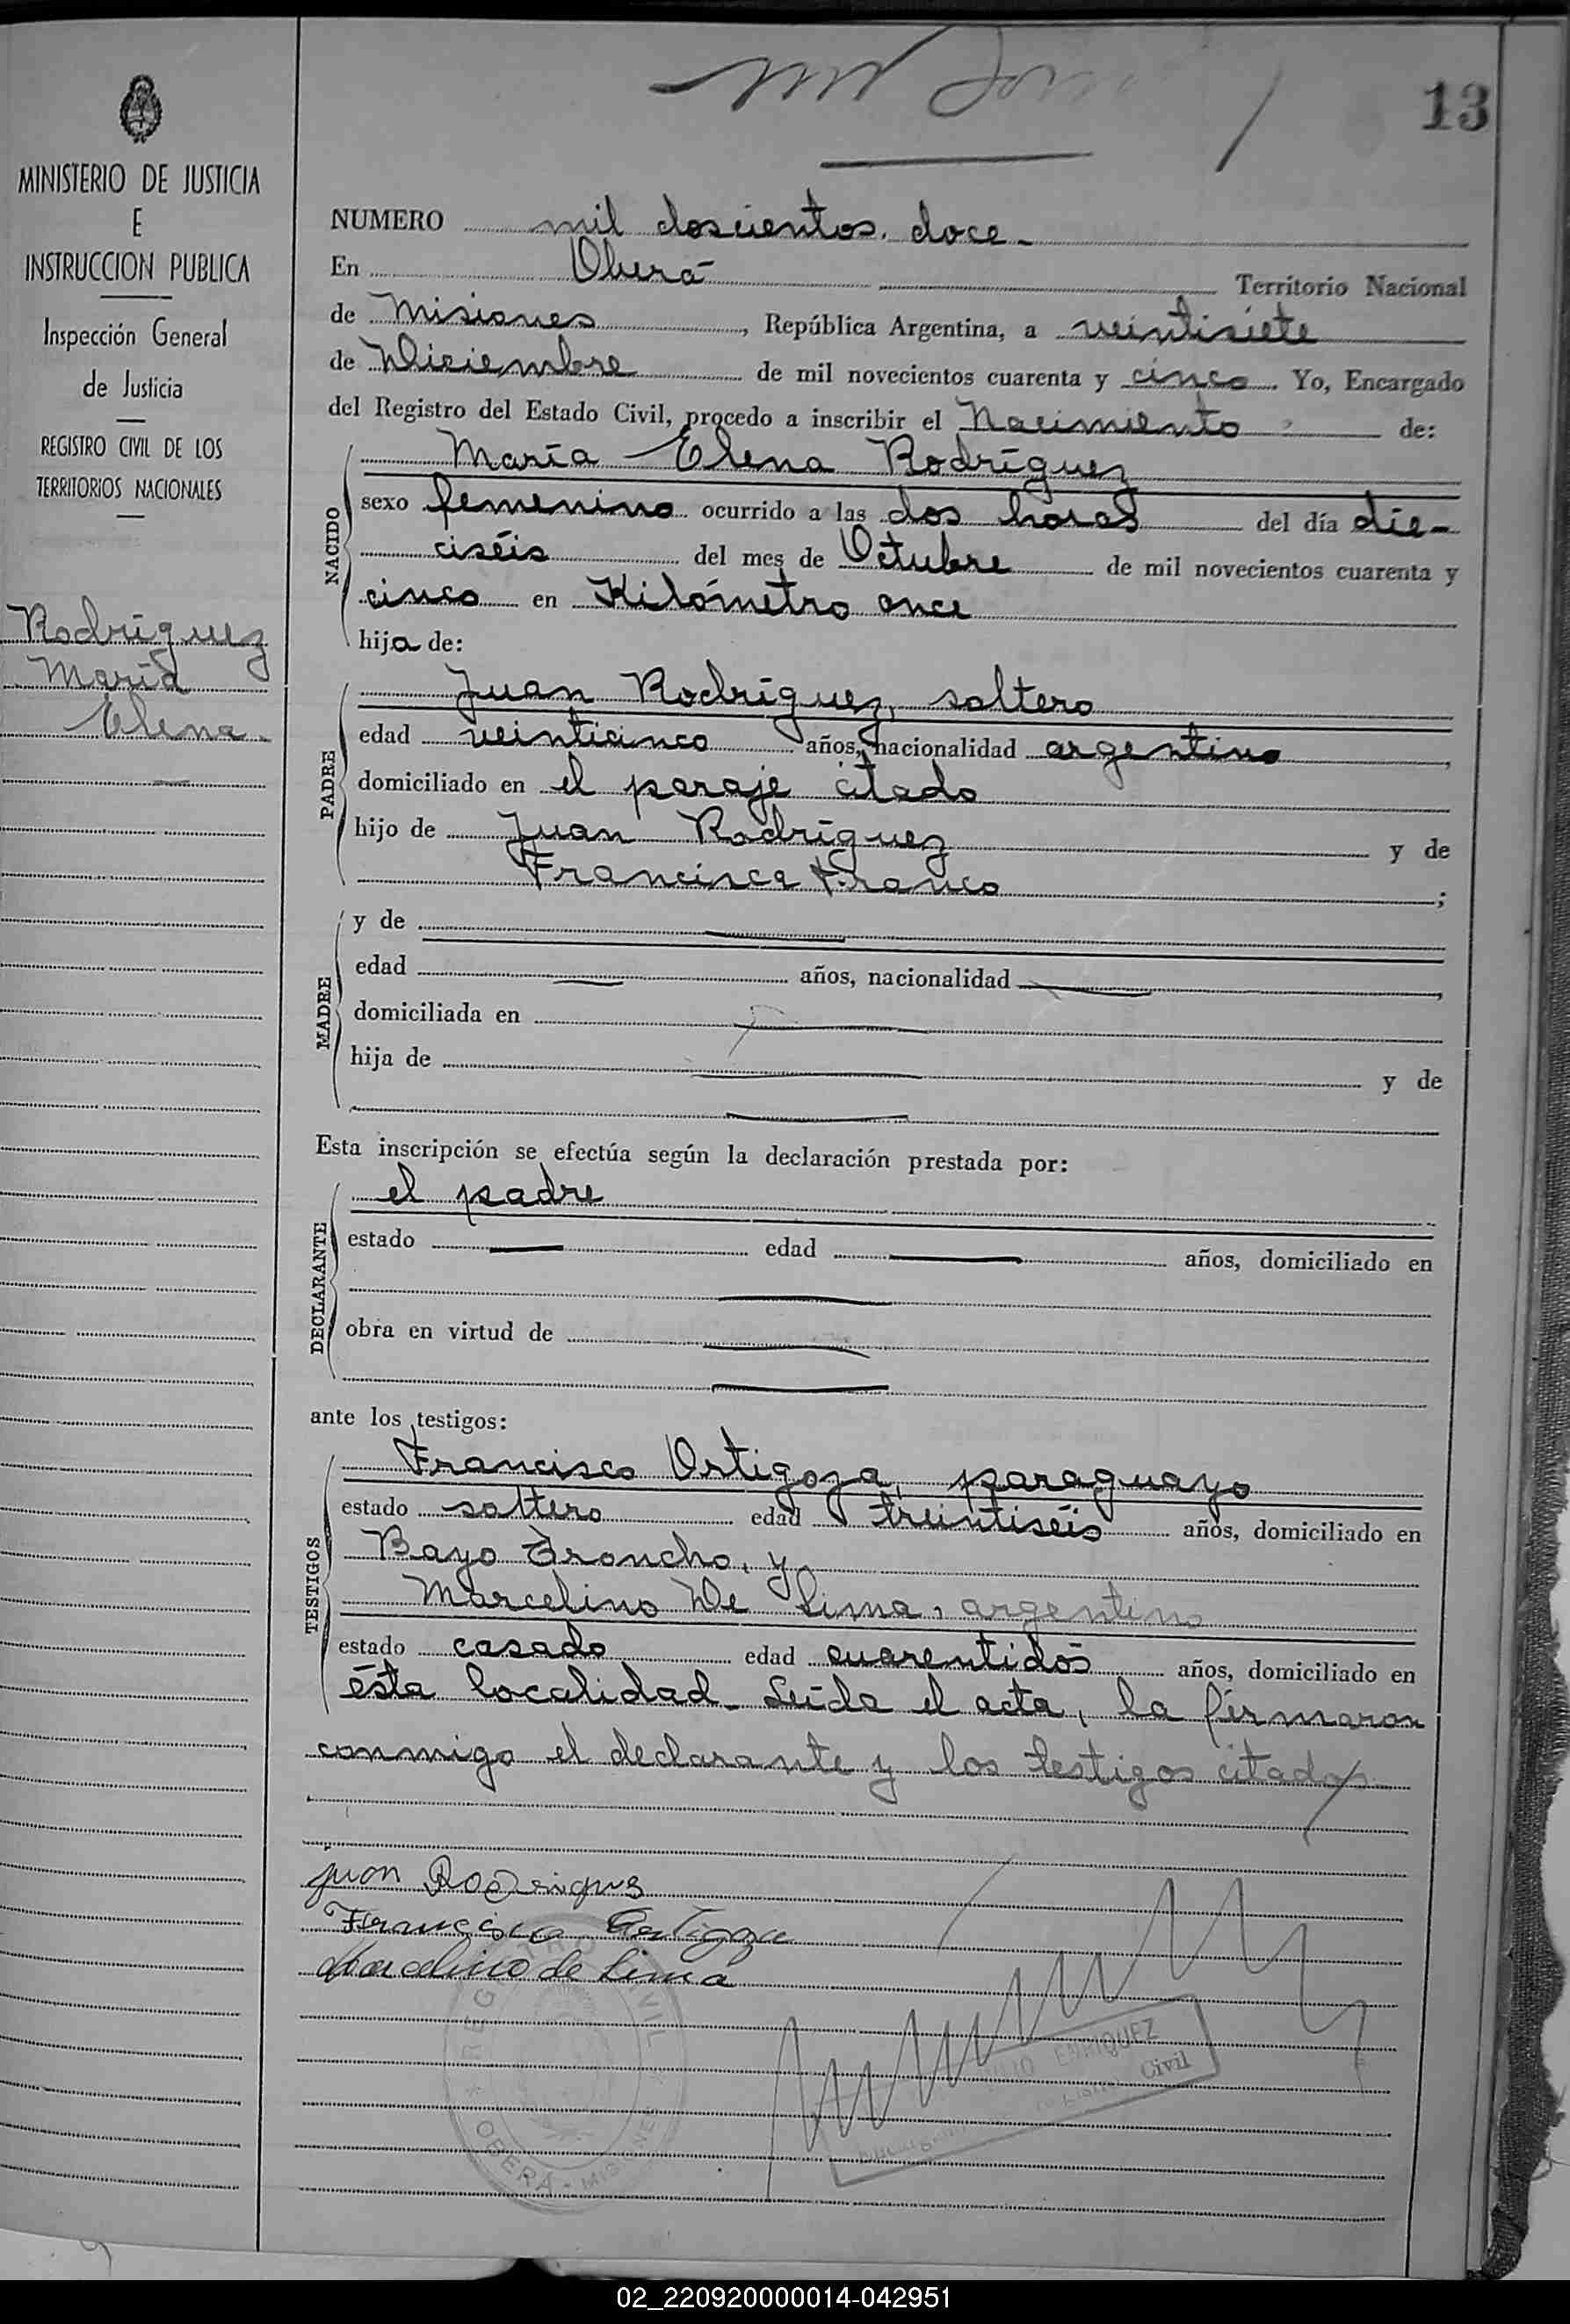 13
MINISTERIO DE JUSTICIA
E
INSTRUCCION PUBLICA
Inspección General
de Justicia
REGISTRO CIVIL DE LOS
TERRITORIOS NACIONALES
Rodríguez
María
Elena.
NUMERO mil doscientos doce.
En Oberá Territorio Nacional
de Misiones, República Argentina, a veintisiete
de Diciembre de mil novecientos cuarenta y cinco. Yo, Encargado
del Registro del Estado Civil, procedo a inscribir el Nacimiento de:
NACIDO
María Elena Rodríguez
sexo femenino ocurrido a las dos horas del día die-
ciséis del mes de Octubre de mil novecientos cuarenta y
cinco en Kilómetro once
hija de:
PADRE
Juan Rodríguez, soltero
edad veinticinco años, nacionalidad argentino
domiciliado en el paraje citado
hijo de Juan Rodríguez y de
Francisca Franco;
MADRE
y de
edad años, nacionalidad
domiciliada en
hija de y de
Esta inscripción se efectúa según la declaración prestada por:
DECLARANTE
el padre
estado edad años, domiciliado en
obra en virtud de
ante los testigos:
TESTIGOS
Francisco Ortigoza, paraguayo
estado soltero edad treintiséis años, domiciliado en
Bayo Troncho, y
Marcelino De Lima, argentino
estado casado edad cuarentidós años, domiciliado en
ésta localidad. Leída el acta, la firmaron
conmigo el declarante y los testigos citados
Juan Rodrigues
Francisco Ortigoza
Marcelino de Lima
REGISTRO CIVIL
OBERÁ - MISIONES
ENRIQUEZ
Civil
02_220920000014-042951